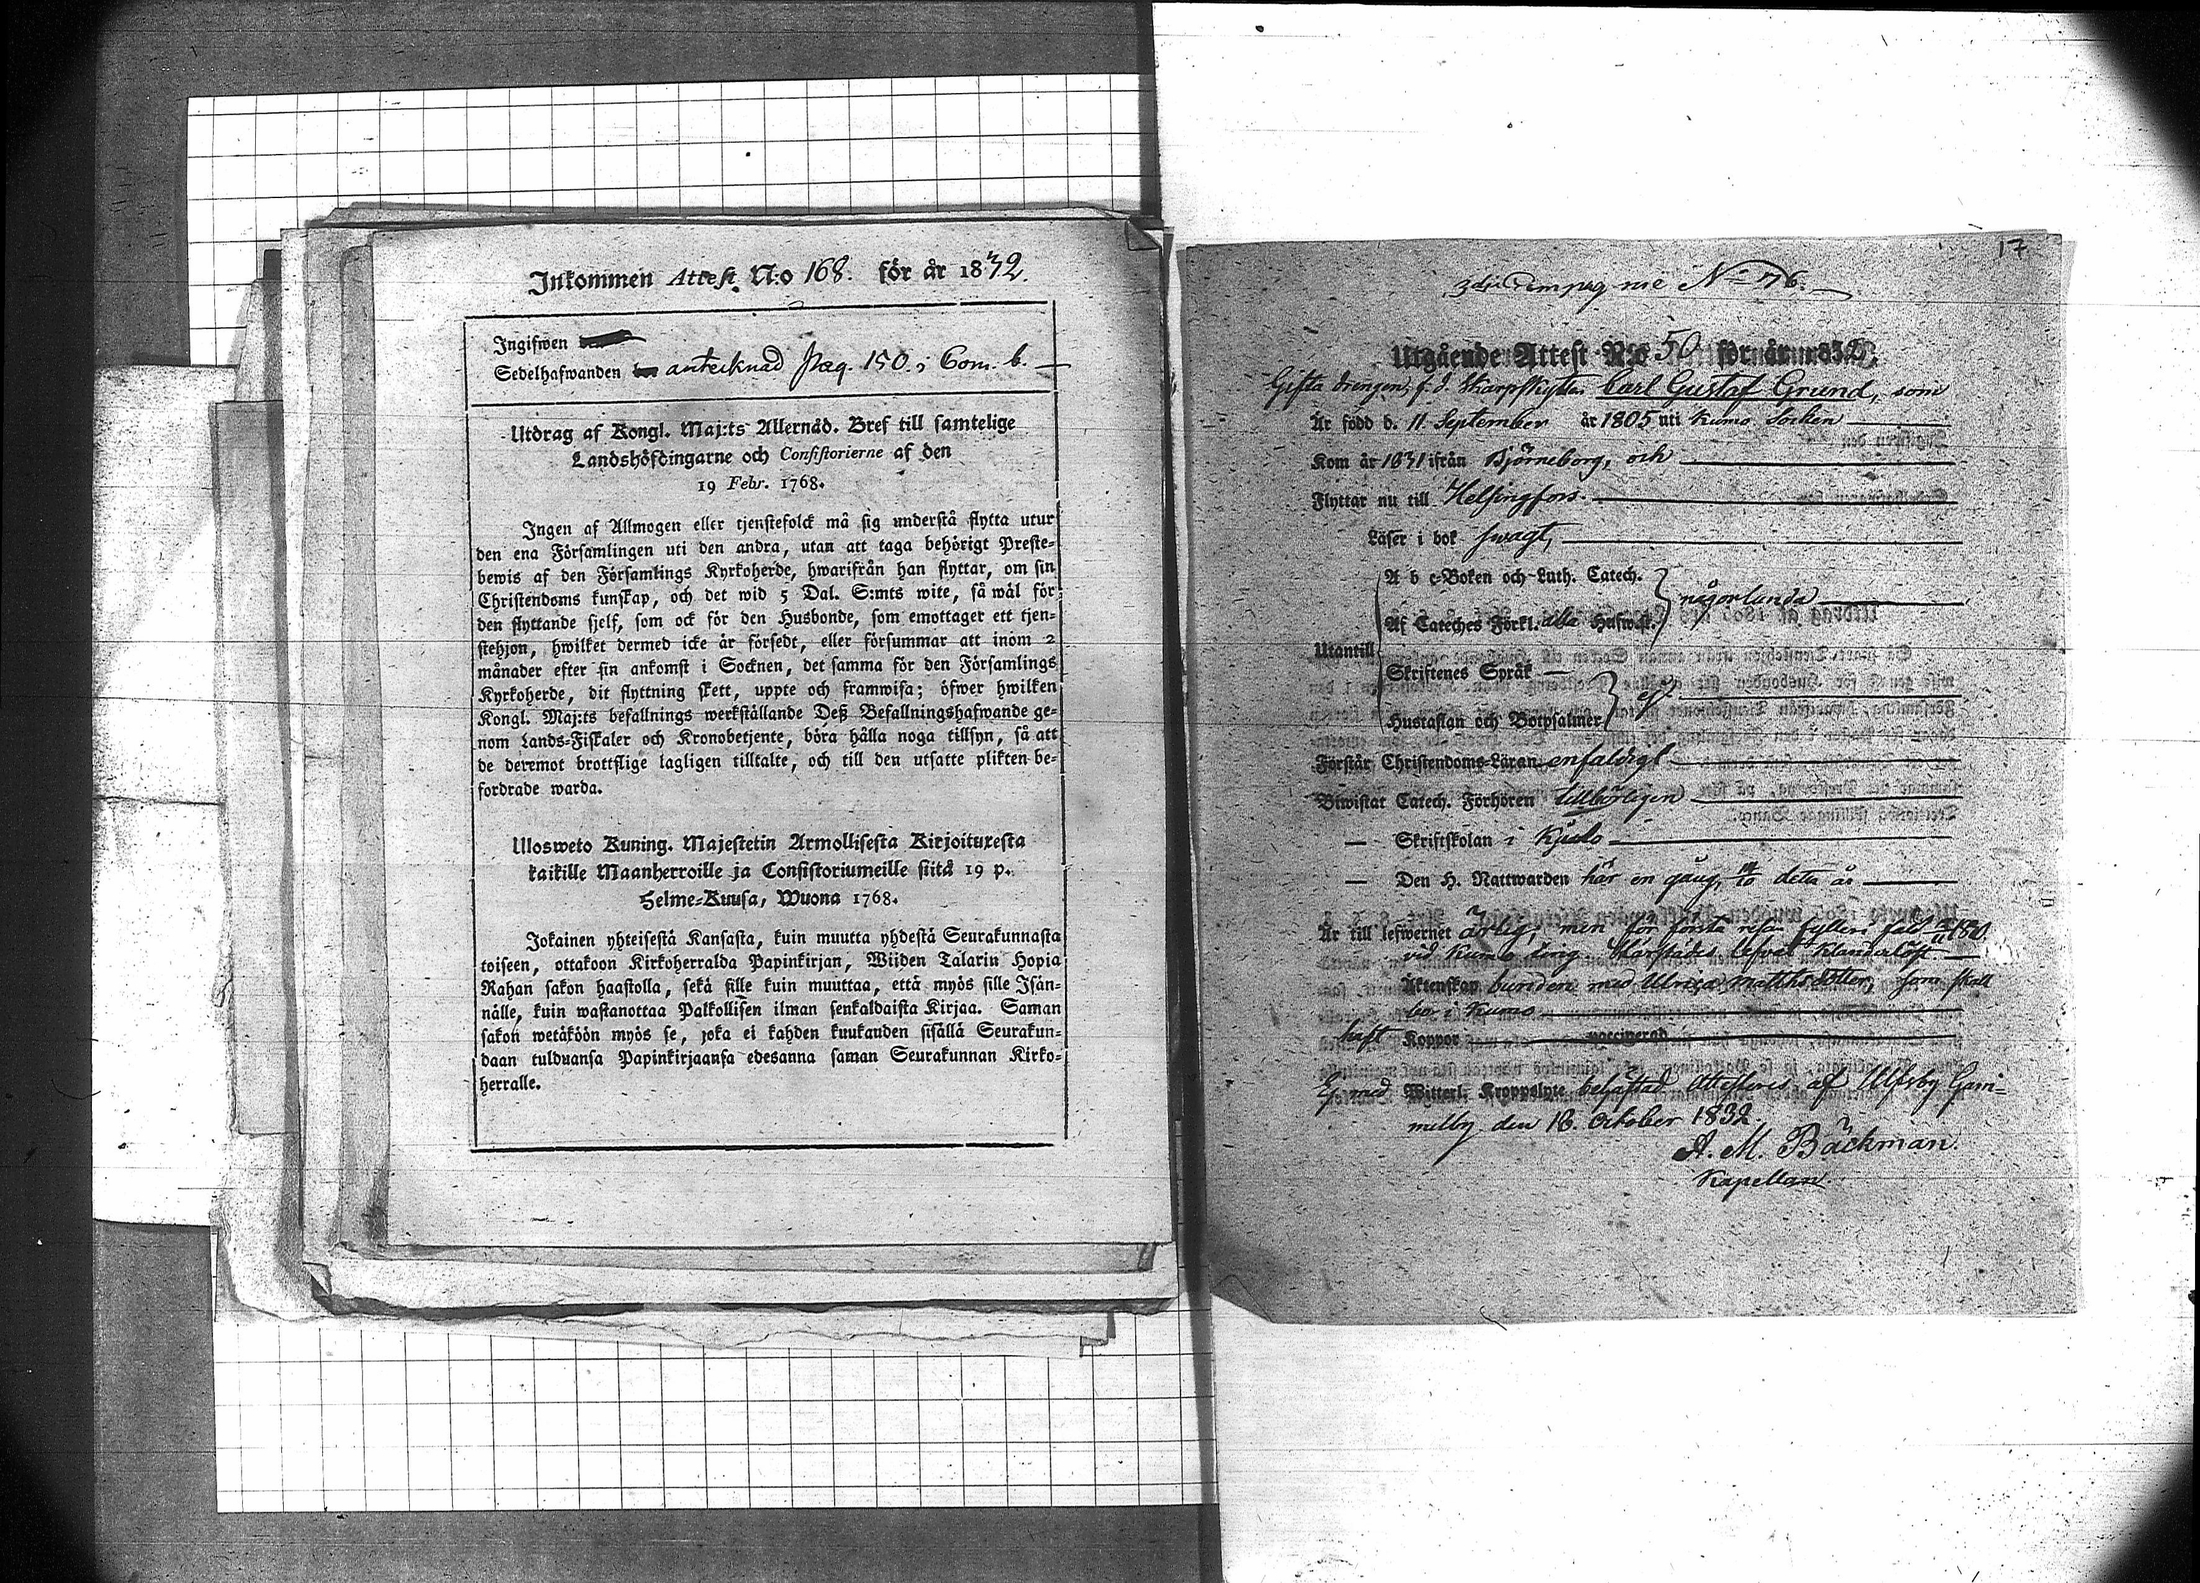 Inkommen Attest N:o 168. för år 1832.
Ingifwen
Sedelhafwanden antecknad pag. 150. i Com. b.
Utdrag af Kongl. Maj:ts Allernåd. Bref till samtelige
Landshöfdingarne och Consistorierne af den
19 Febr. 1768.
Ingen af Allmogen eller tjenstefolck må sig understå flytta utur
den ena Församlingen uti den andra, utan att taga behörigt Preste-
bewis af den Församlings Kyrkoherde, hwarifrån han flyttar, om sin
Christendoms kunskap, och det wid 5 Dal. S:mts wite, så wäl för
den flyttande sjelf, som ock för den Husbonde, som emottager ett tjen-
stehjon, hwilket dermed icke är försedt, eller försummar att inom 2
månader efter sin ankomst i Socknen, det samma för den Församlings
Kyrkoherde, dit flyttning skett, uppte och framwisa; öfwer hwilken
Kongl. Maj:ts befallnings werkställande Deß Befallningshafwande ge-
nom Lands-Fiskaler och Kronobetjente, böra hålla noga tillsyn, så att
de deremot brottslige lagligen tilltalte, och till den utsatte plikten be-
fordrade warda.
Ulosweto Kuning. Majestetin Armollisesta Kirjoituxesta
kaikille Maanherroille ja Consistoriumeille siitä 19 p.
Helme-Kuusa, Wuona 1768.
Jokainen yhteisestä Kansasta, kuin muutta yhdestä Seurakunnasta
toiseen, ottakoon Kirkoherralda Papinkirjan, Wiiden Talarin Hopia
Rahan sakon haastolla, sekä sille kuin muuttaa, että myös sille Isän-
nälle, kuin wastanottaa Palkollisen ilman senkaldaista Kirjaa. Saman
sakon wetäköön myös se, joka ei kahden kuukauden sisällä Seurakun-
daan tulduansa Papinkirjaansa edesanna saman Seurakunnan Kirko-
herralle.
17
No 76.
Utgående Attest N:o 50 för år 1832.
Gifta drengen, f. d. Skarpskytten Carl Gustaf Grund, som
Är född d. 11 September år 1805 uti Kumo Socken
Kom år 1831 ifrån Björneborg, och
Flyttar nu till Helsingfors.
Läser i bok swagt,
A b c-Boken och Luth. Catech.
någorlunda
Af Cateches Förkl. alla Hufwdst.
Utantill
Skriftenes Språk
ej
Hustaflan och Botpsalmer
Förstår Christendoms-Läran enfaldigt
Biwistat Catech. Förhören tillbörligen
— Skriftskolan i Kjulo
— Den H. Nattwarden här en gång, detta år
Är till lefwernet ärlig, men för första resan fylleri
vid Kumo ting
Äktenskap bunden med Ulrica Matthsdotter, som skall
bo i Kumo
haft Koppor vaccinerad
Ej med Witterl. Kroppslyte behäftad Attesteres af Ulfsby Gam-
melby den 18. October 1832
A. M. Bäckman.
Kapellan.